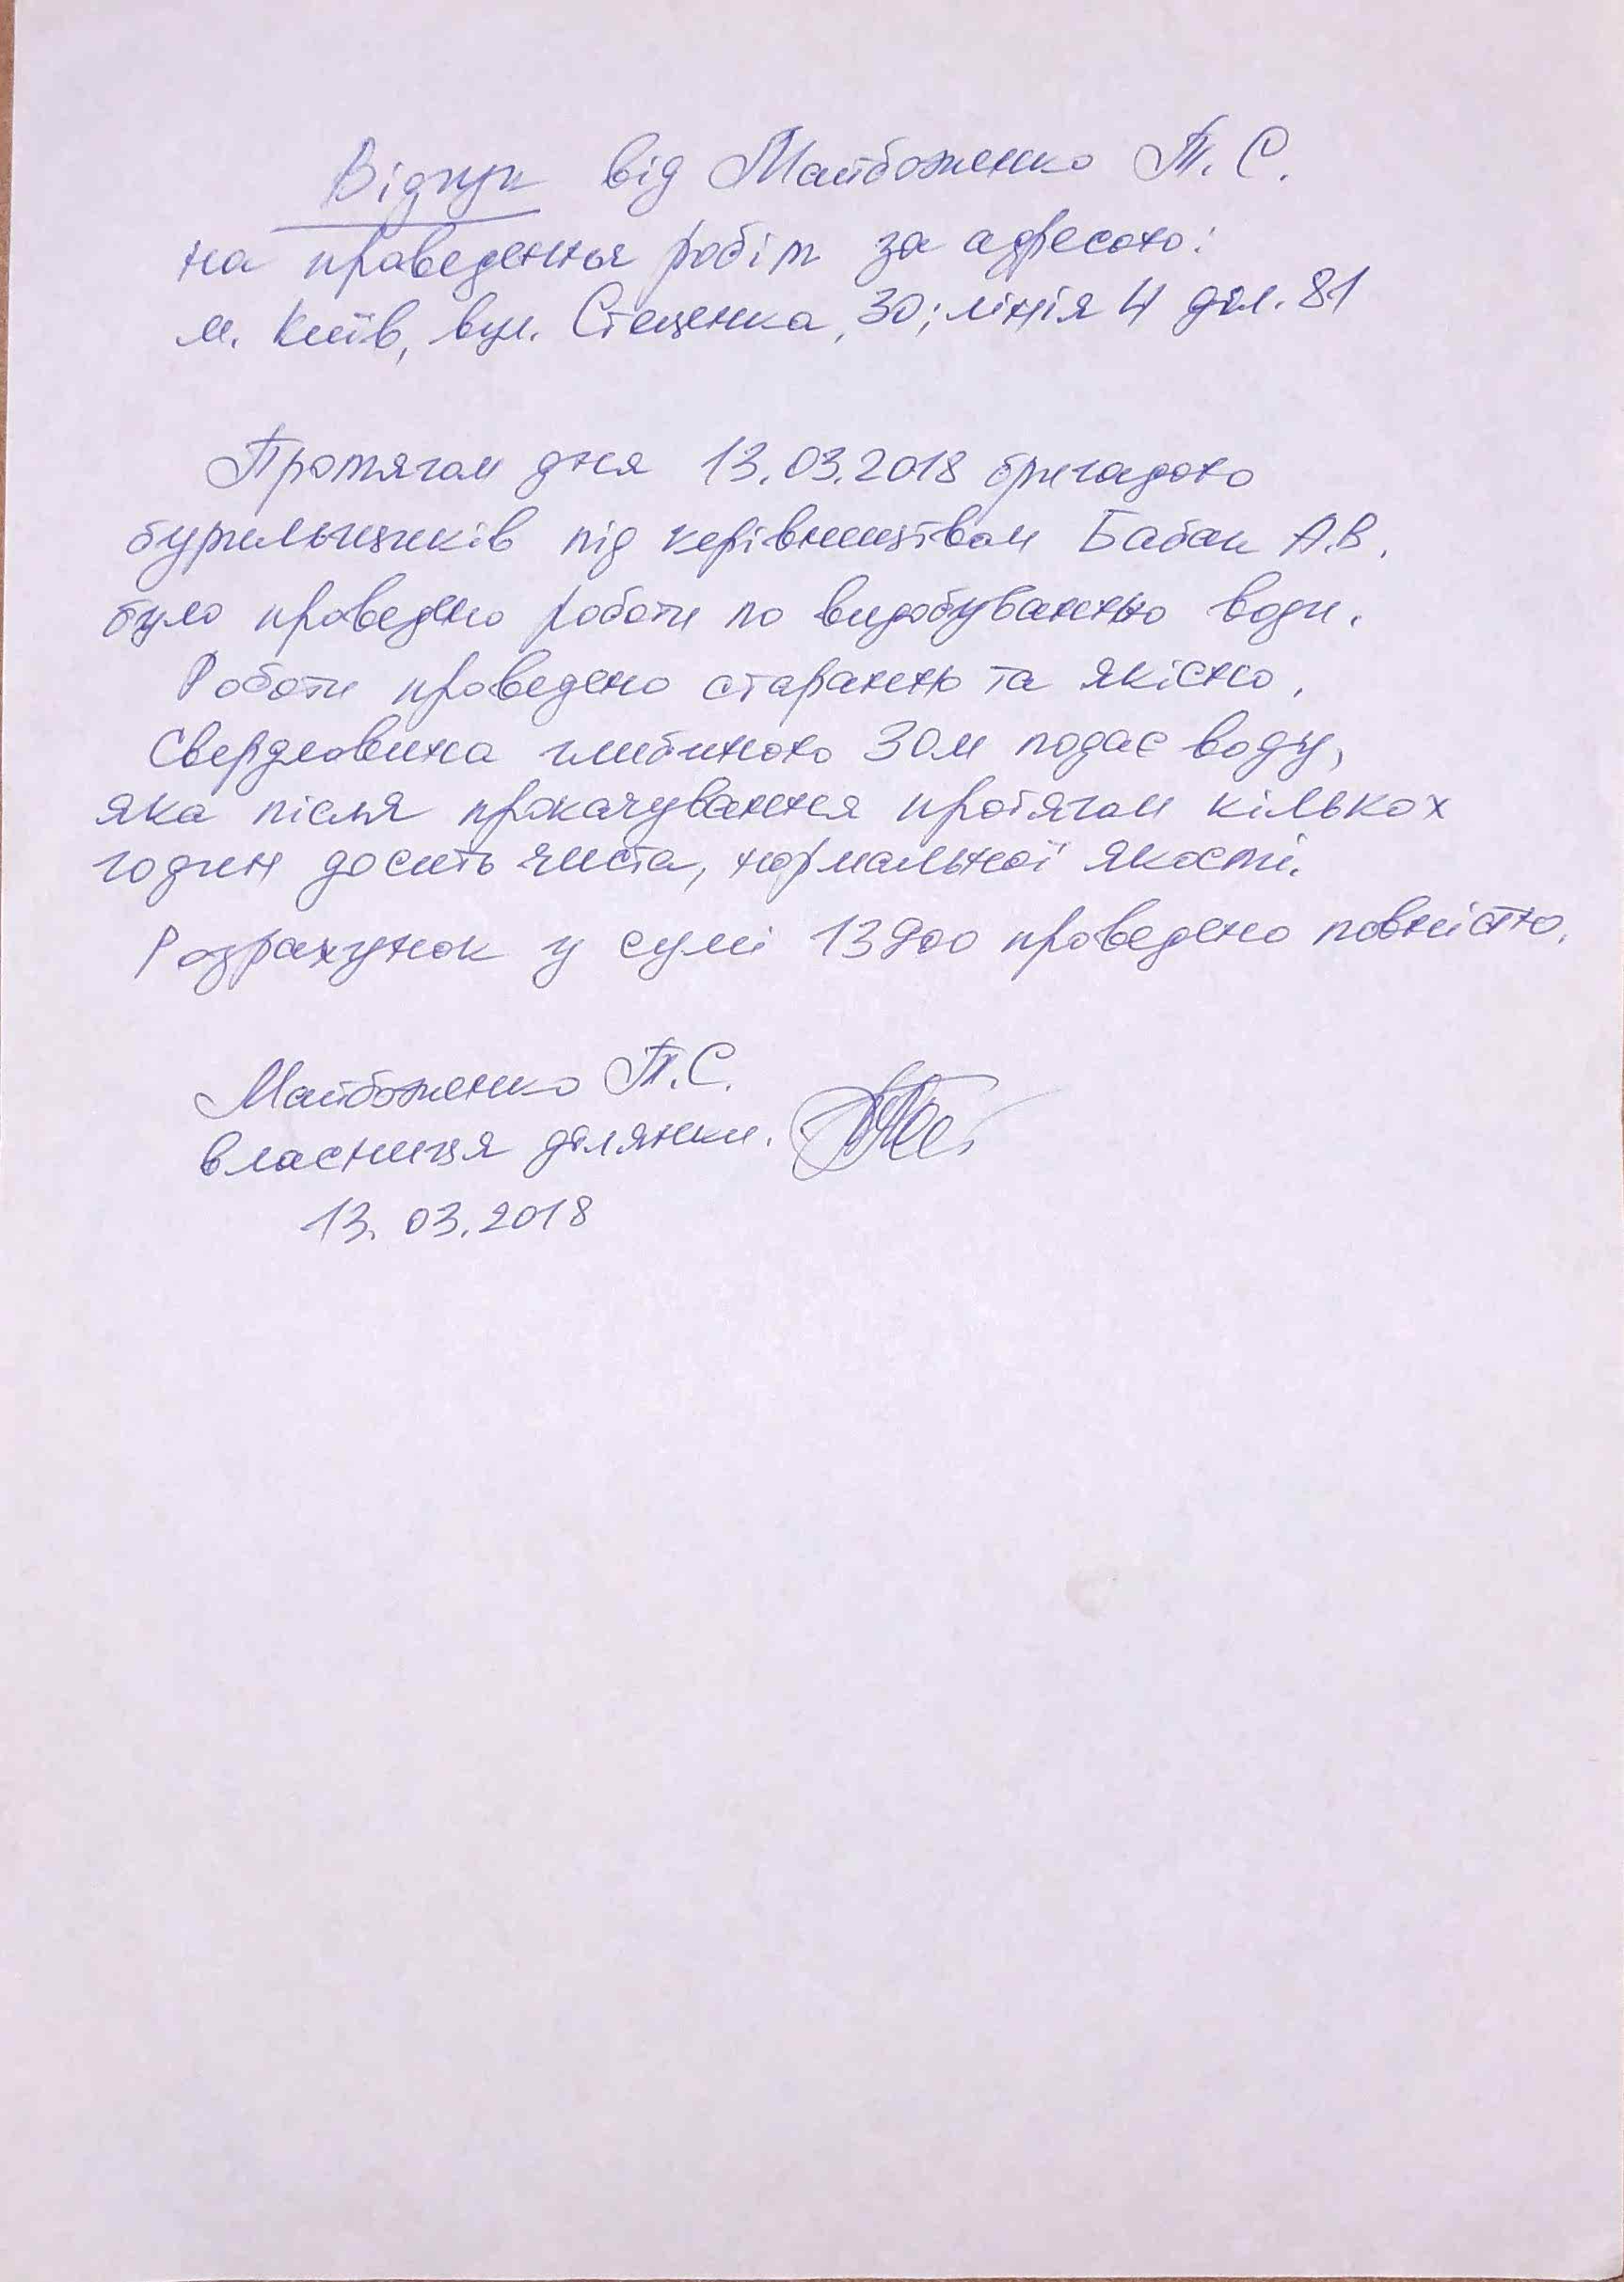 Відгук від Майбоженко Т. С.
на проведення робіт за адресою:
м. Київ, вул. Стеценка, 30; лінія 4 діл. 81
Протягом дня 13.03.2018 бригадою
бурильщиків під керівництвом Бабак А.В.
було проведено роботи по видобуванню води.
Роботи проведено старанно та якісно.
Свердловина глибиною 30м подає воду,
яка після прокачування протягом кількох
годин досить чиста, нормальної якості.
Розрахунок у сумі 13900 проведено повністю.
Майбоженко Т.С.
власниця ділянки.
13.03.2018